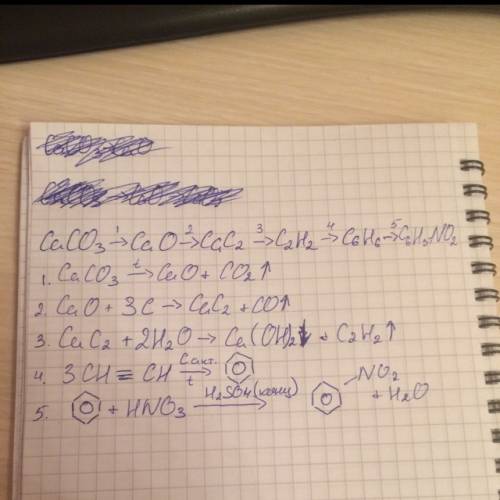 CaCO₃ →¹ CaO →² CaC₂ →³ C₂H₂ →⁴ C₆H₆ →⁵ C₆H₅NO₂
1. CaCO₃ →ᵗ CaO + CO₂↑
2. CaO + 3C → CaC₂ + CO↑
3. CaC₂ + 2H₂O → Ca(OH)₂↓ + C₂H₂↑
4. 3CH≡CH Cакт. t →
5. + HNO₃ H₂SO₄(конц) → NO₂ + H₂O